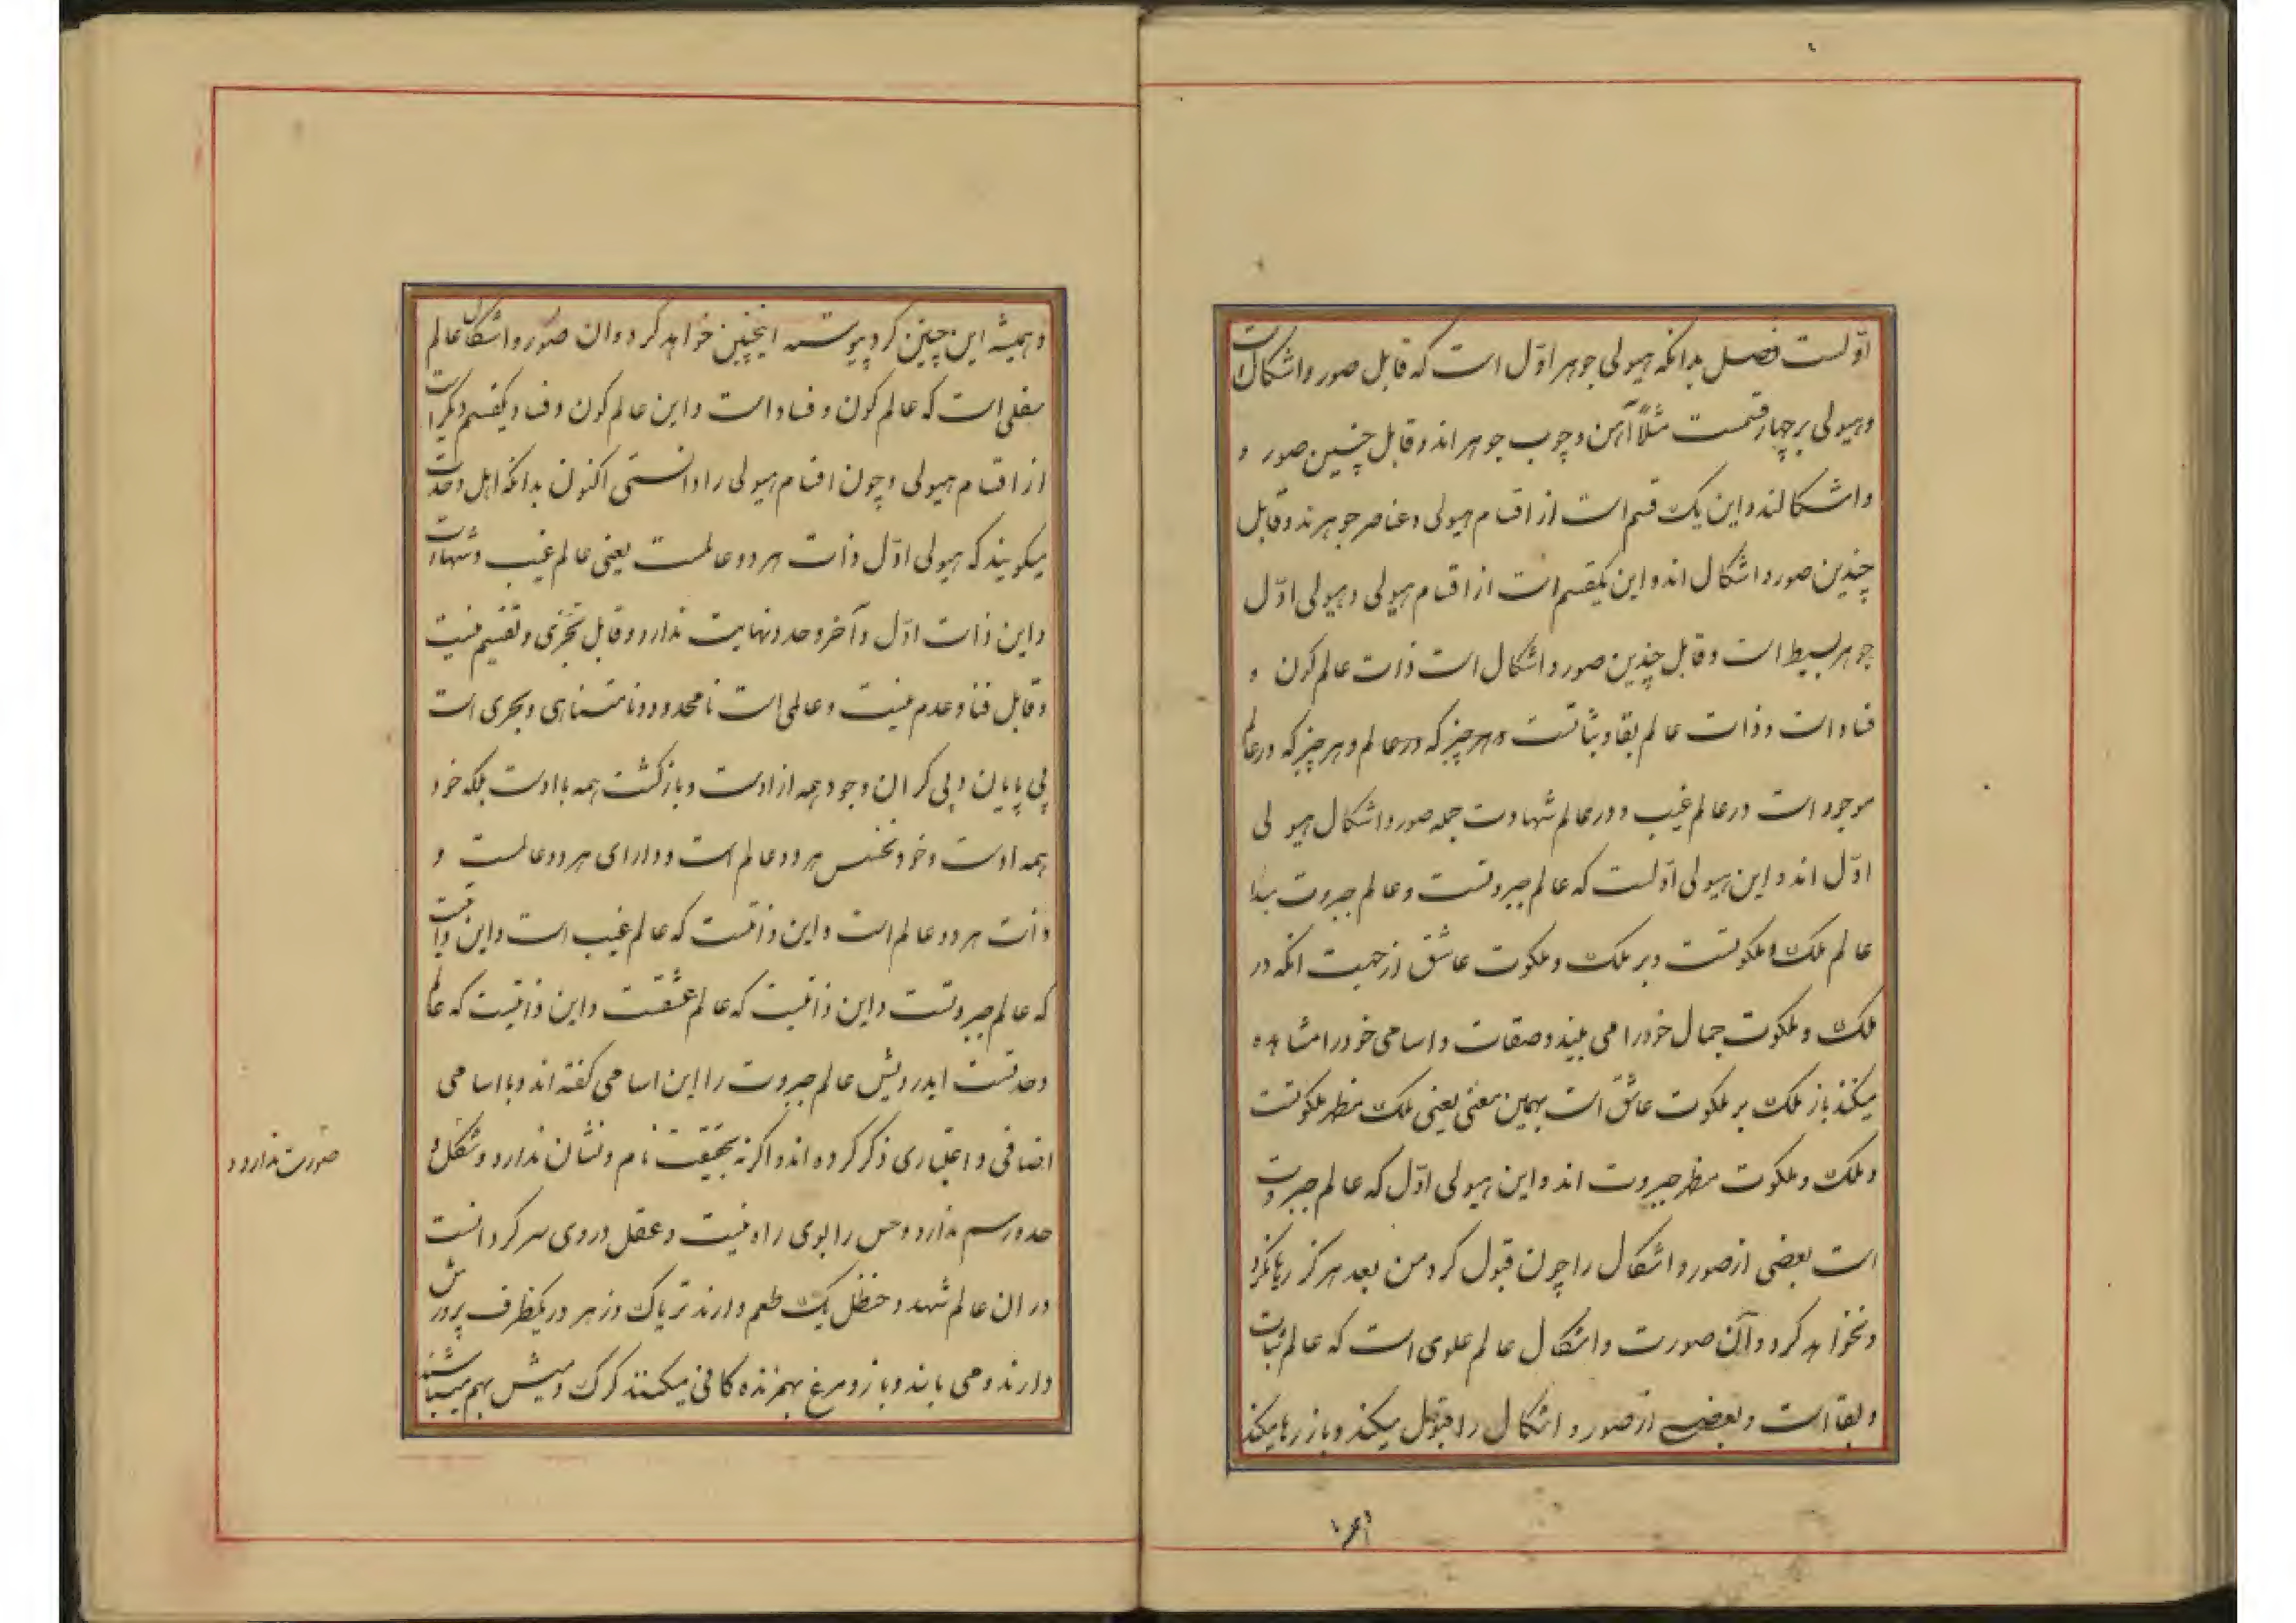 اوّلست فصل بدانکه هیولی جوهر اوّل است که قابل صور و اشکال است
و هیولی بر چهار قسمت مثلاً آهن و چوب جوهراند و قابل چنین صور و
و اشکالند و این یک قسم است از اقسام هیولی و عناصر جوهرند و قابل
چندین صور و اشکال اند و این یکقسم است از اقسام هیولی و هیولی اوّل
جوهر بسیط است و قابل چندین صور و اشکال است ذات عالم کون و
فساد است و ذات عالم بقا و ثباتست هر چیز که در عالم و هر چیز که در عالم
موجود است در عالم غیب و در عالم شهادت جمله صور و اشکال هیولی
اوّل اند و این هیولی اوّلست که عالم جبروتست و عالم جبروت مبدا
عالم ملک و ملکوتست و بر ملک و ملکوت عاشق از جهت انکه در
ملک و ملکوت جمال خود را می بیند و صفات و اسامی خود را مشاهده
میکند باز ملک بر ملکوت عاشق است بهمین معنی یعنی ملک مظهر ملکوتست
و ملک و ملکوت مظهر جبروت اند و این هیولی اوّل که عالم جبروت
است بعضی از صور و اشکال را چون قبول کرد من بعد هرگز رها نکرد
و نخواهد کرد و آن صورت و اشکال عالم علوی است که عالم ثبات
و بقا است و بعضی از صور و اشکال را قبول میکند و باز رها میکند
و همیشه این چنین کرد پیوسته اینچنین خواهد کرد و ان صور و اشکال عالم
سفلی است که عالم کون و فساد است و این عالم کون و فساد یکقسم دیکر است
از اقسام هیولی و چون اقسام هیولی را دانستی اکنون بدانکه اهل وحدت
میکویند که هیولی اوّل ذات هر دو عالمست یعنی عالم غیب و شهادت
و این ذات اوّل و آخر و حد و نهایت ندارد و قابل تجزّی و تقسیم نیست
و قابل فنا و عدم نیست و عالمی است نامحدود و نامتناهی و بحری است
بی پایان و بی کران وجود همه از اوست و بازکشت همه با اوست بلکه خود
همه اوست و خود نفس هر دو عالم است و دارای هر دو عالمست و
ذات هر دو عالم است و این ذاتست که عالم غیب است و این ذاتیست
که عالم جبروتست و این ذاتیست که عالم عشقست و این ذاتیست که عالم
وحدتست ایدرویش عالم جبروت را این اسامی کفته اند و با اسامی
اضافی و اعتباری ذکر کرده اند و اکرنه بحقیقت نام و نشان ندارد و شکل و
صورت ندارد و
حد و رسم ندارد و حس را بوی راه نیست و عقل در وی سرکردانست
در ان عالم شهد و حنظل یک طعم دارند تریاک و زهر در یکظرف پرورش
دارند و می یابند و باز و مرغ بهم زنده کافی میکنند کرک و میش بهم میباشند